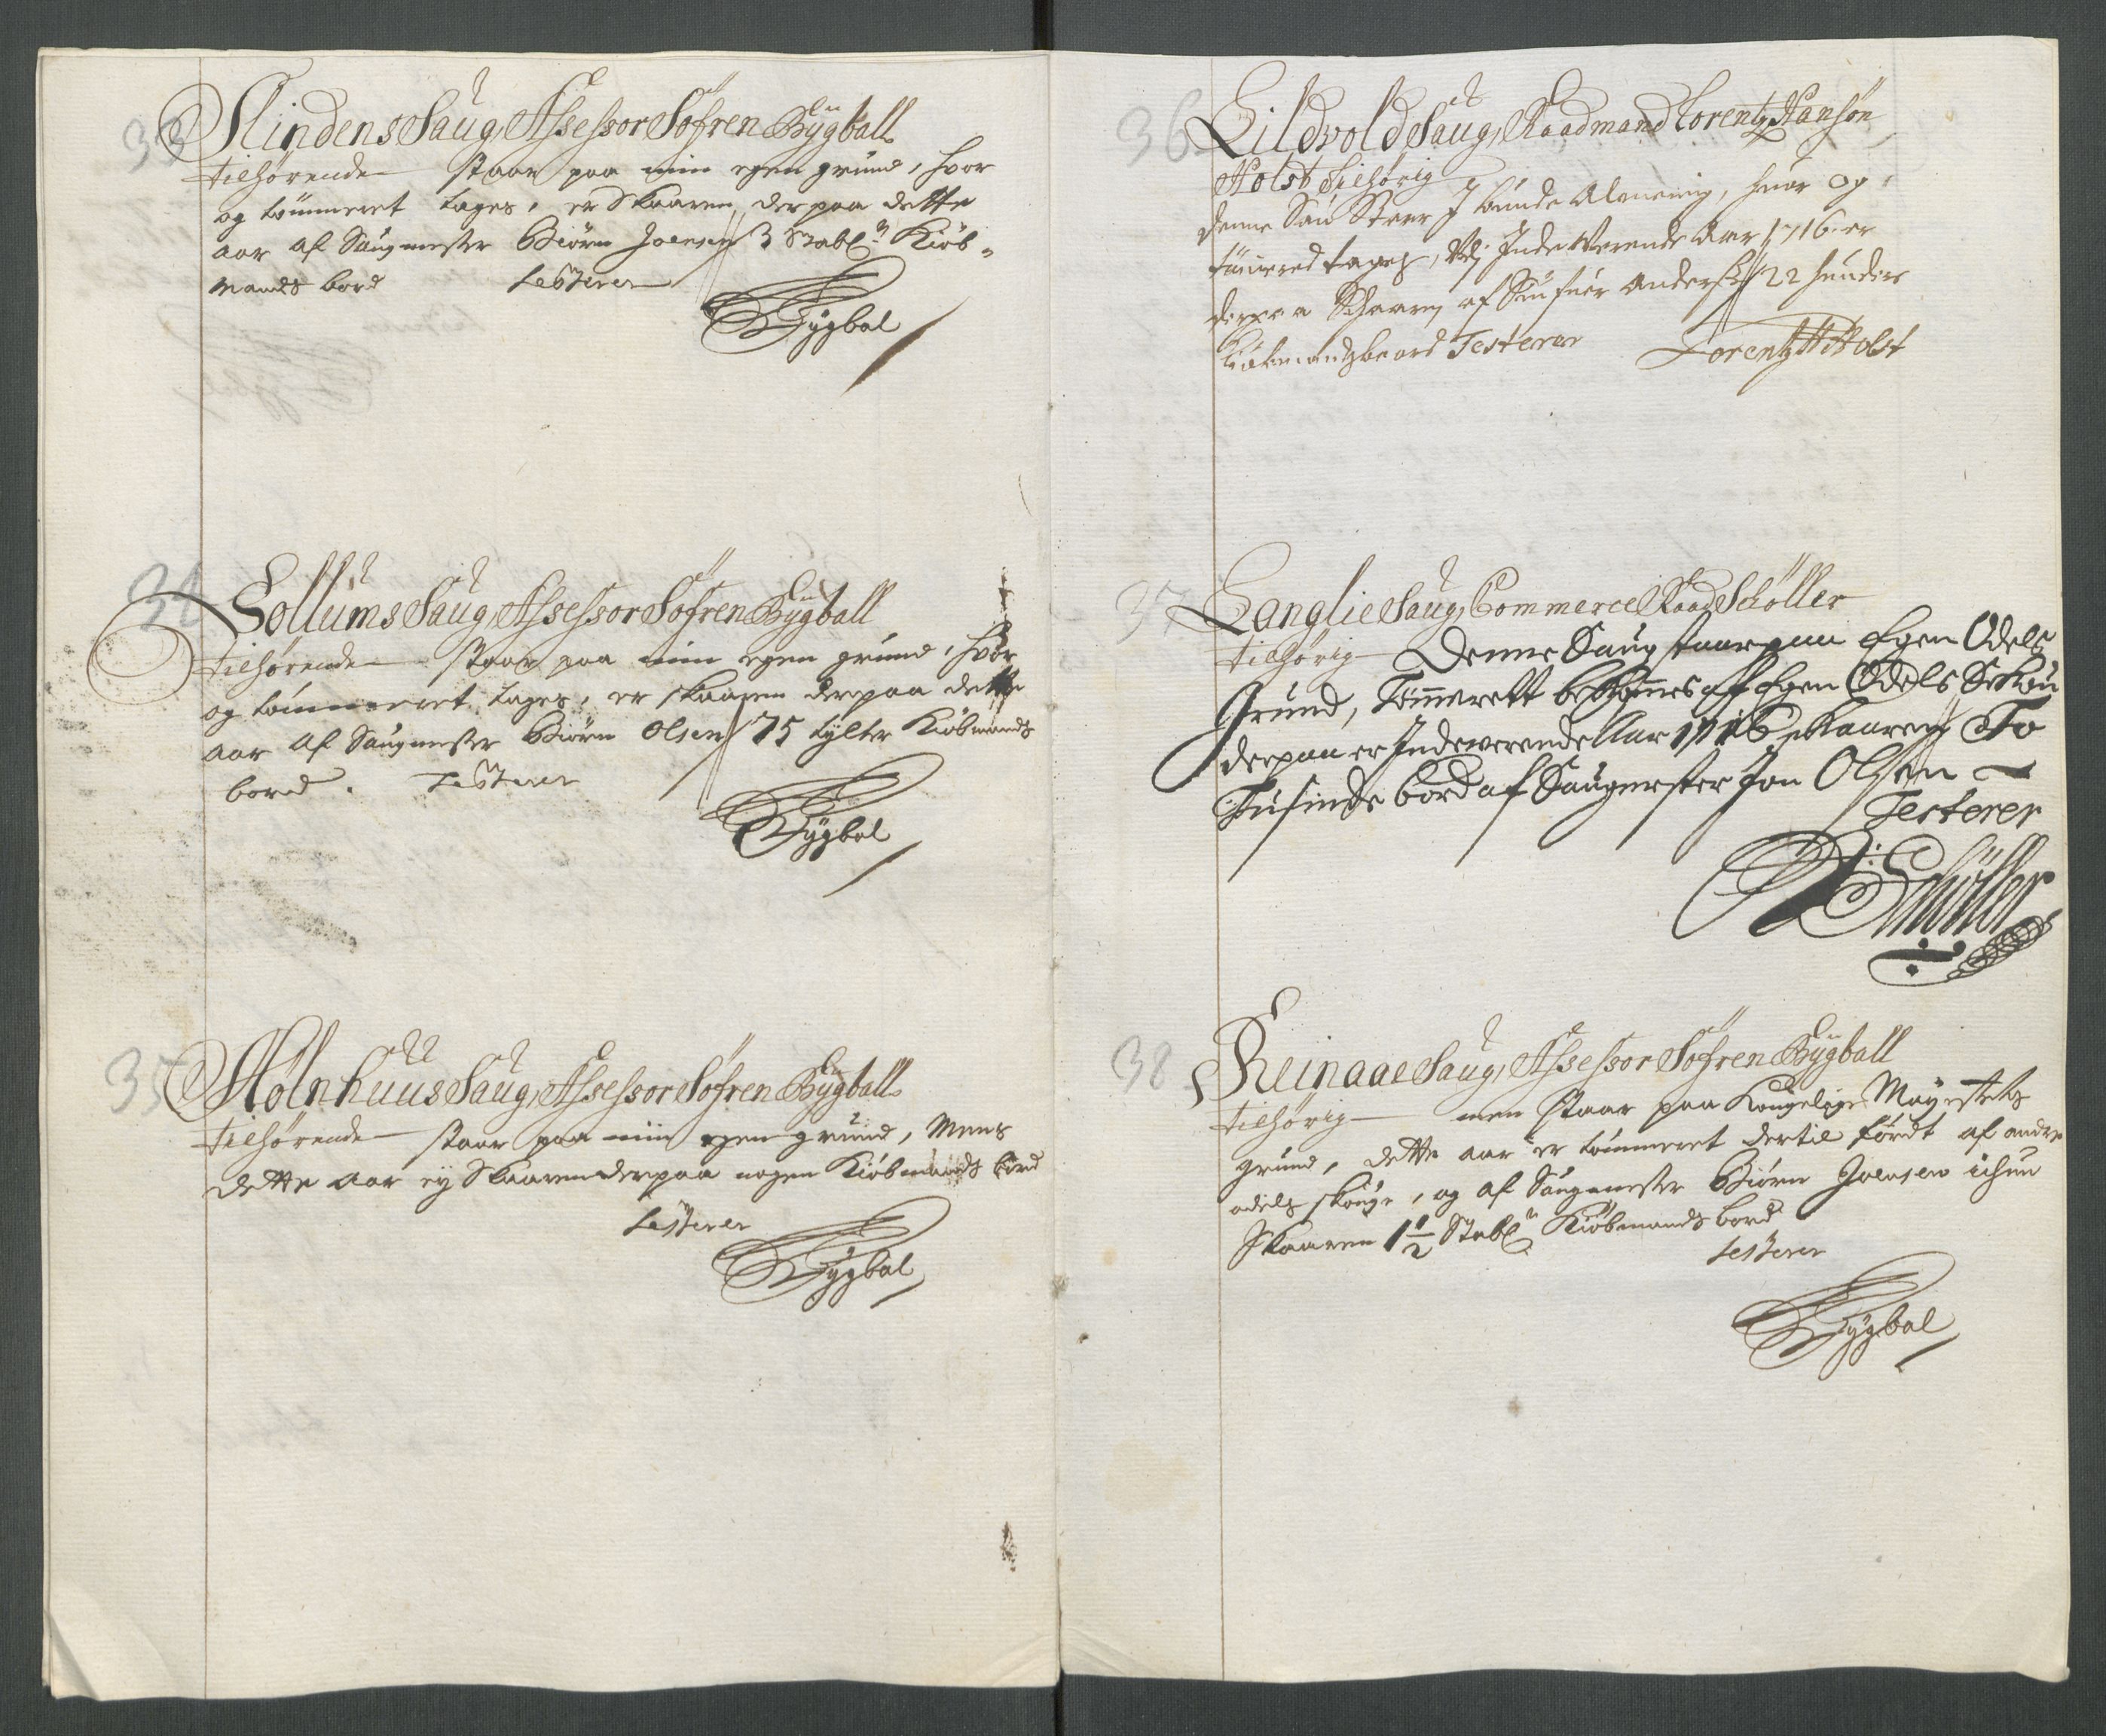 33
Slindens Saug, Assessor Söfren Bÿgball
tilhørende staar paa min egen grund, hvor
og tømmeret tages, er Skaaren derpaa dette
aar af Saugmester Biörn Joensen 3 Stabl: Kiöb-
mands bord Testerer
Bÿgbal
34
Sollums Saug, Assessor Söfren Bÿgball
tilhørende staar paa min egen grund, hvor
og tømmeret tages, er skaaren derpaa dette
aar af Saugmester Biörn Olsen 75 tylter Kiöbmands
bord. Testerer
Bÿgbal
35
Mölnhuus Saug, Assessor Söfren Bÿgball
tilhørende staar paa min egen grund, Mens
dette aar eÿ Skaaren derpaa nogen Kiöbmands bord
Testerer
Bÿgbal
36
Lildvold Saug, Raadmand Lorentz Hansön
Holst Tilhørig
denne Sau Staar J Almening, huor og
tages, Jndeverende Aar 1716 er
derpaa af Anders 22 hunder
Testerer Lorentz H Holst
37
Langlie Saug, Commerce Raad Schöller
tilhørig Denne Saug staar paa Egen Odels
Grund, Tømmerett bekommes aff Egen Odels Skou
derpaa er Jndeverende Aar 1716 skaaren To
Tusinde bord af Saugmester Jon Olsen
Testerer
Schöller
38
Reinaae Saug, Assessor Söfren Bÿgball
tilhørig men staar paa Kongelige Maÿestets
grund, dette aar er tømmeret dertil fördt af andre
odels skouge, og af Saugmester Biörn Joensen ichun
Skaaren 1 1/2 Stabl: Kiöbmands bord
Testerer
Bÿgbal